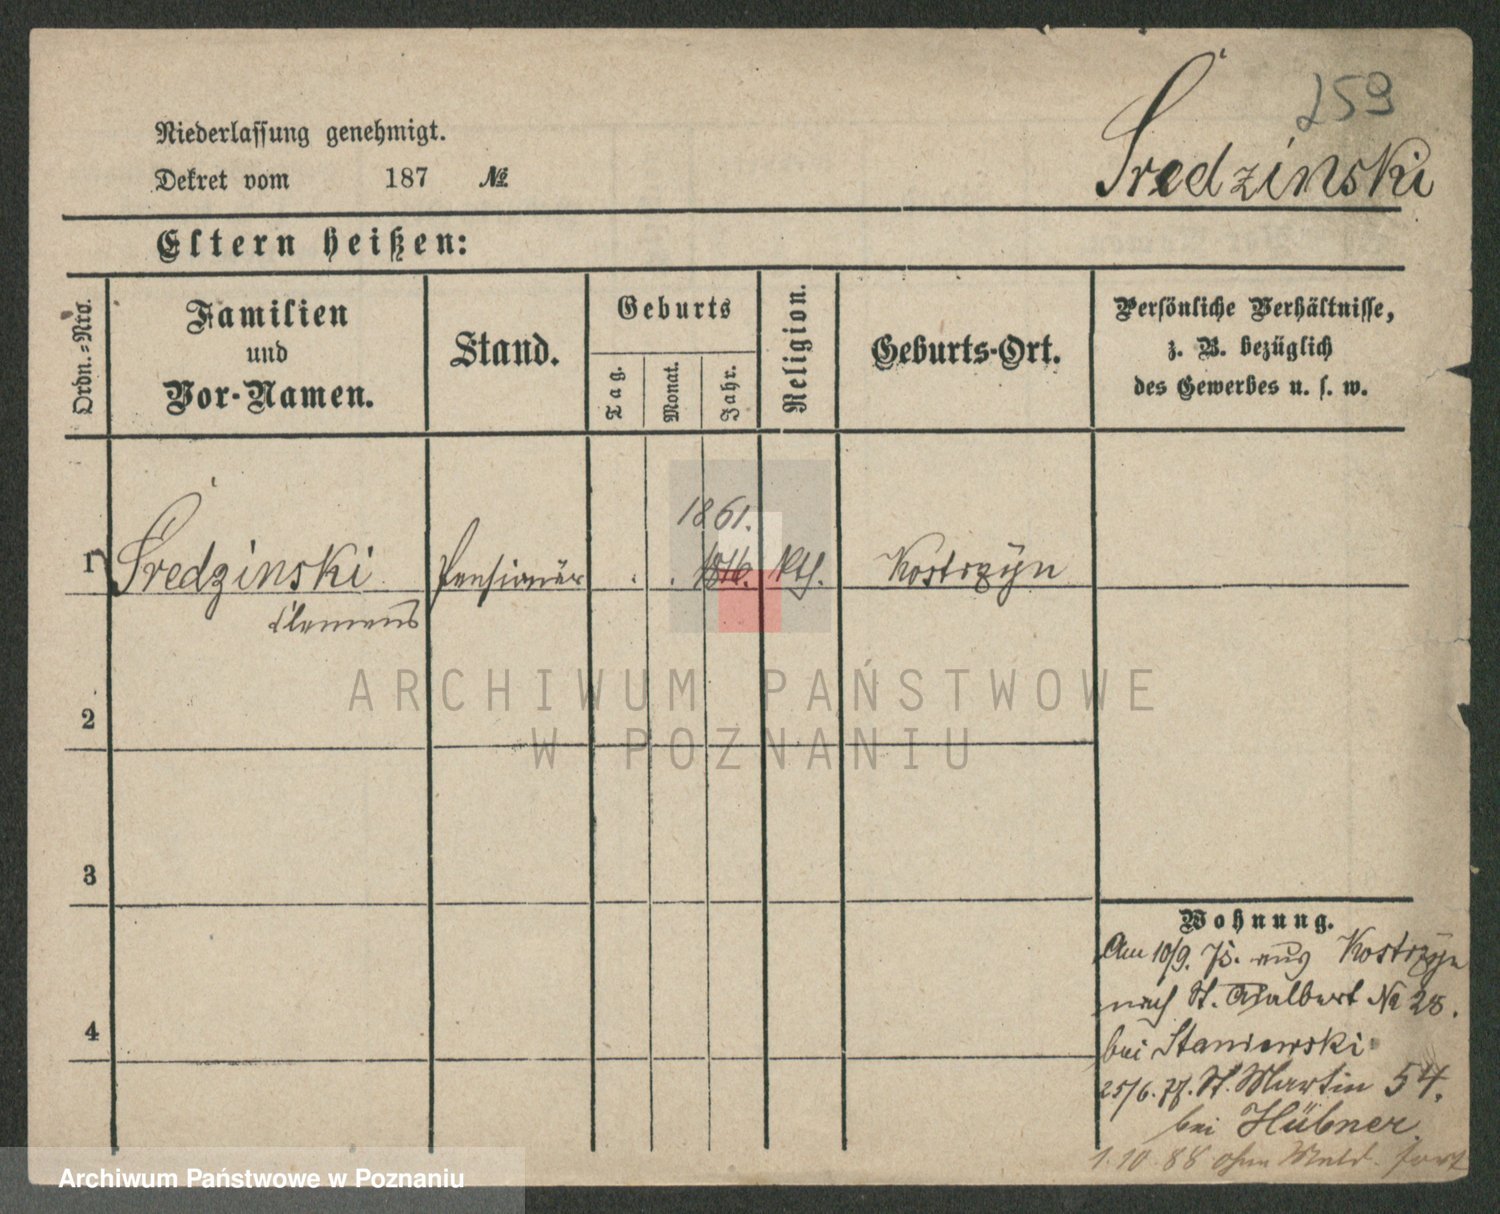 259
Średzinski
Niederlassung genehmigt.
Dekret vom 187 №
Eltern heißen:
Ordn.-Nro.
Familien
und
Vor-Namen.
Stand.
Geburts
Tag.
Monat.
Jahr.
Religion.
Geburts-Ort.
Persönliche Verhältnisse,
z. B. bezüglich
des Gewerbes u. s. w.
1861.
1 Średzinski Pensionär . . kth. Kostrzyn
Clemens
2
3
4
Wohnung.
Am 10/9. 75. aus Kostrzyn
nach St. Adalbert № 28.
bei Staniewski
25/6. 77. St. Martin 54.
bei Hübner.
1.10 88 ohne Meld. fort
ARCHIWUM PAŃSTWOWE
W POZNANIU
Archiwum Państwowe w Poznaniu